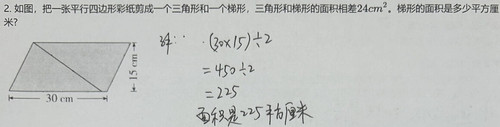 2. 如图，把一张平行四边形彩纸剪成一个三角形和一个梯形，三角形和梯形的面积相差24cm²。梯形的面积是多少平方厘
米？
解：(30×15)÷2
=450÷2
=225
面积是225平方厘米
15 cm
30 cm